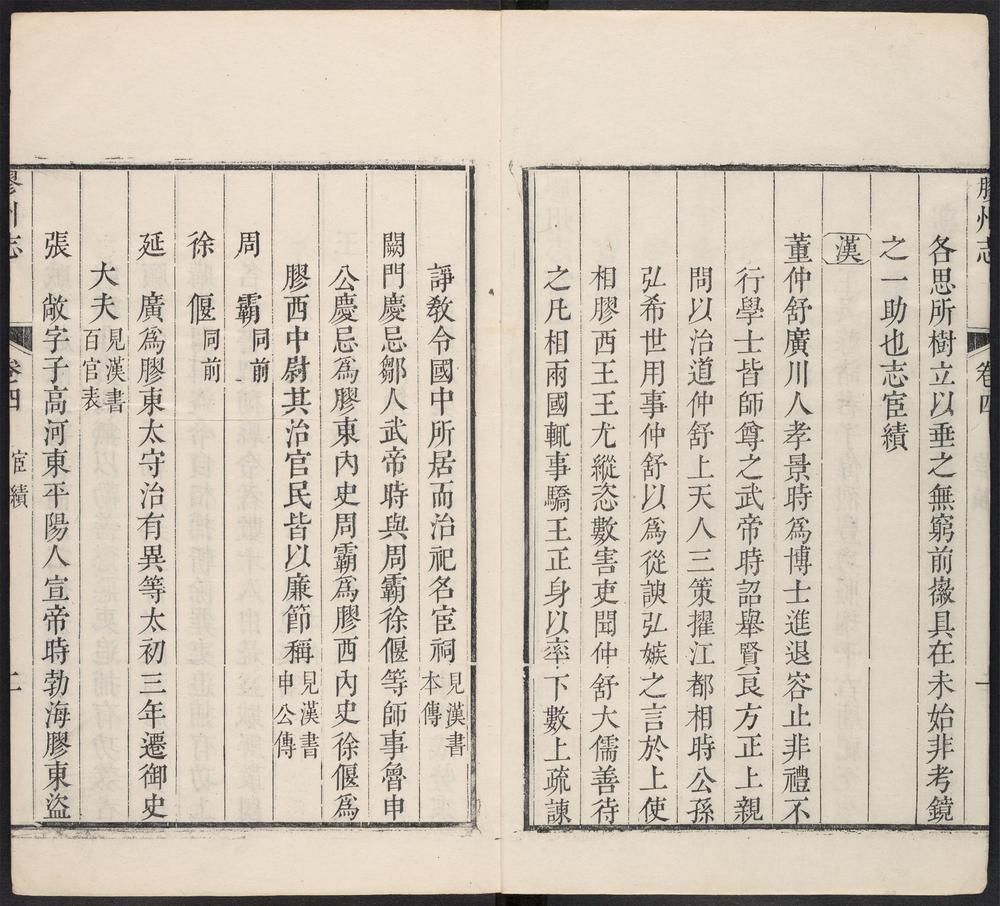 膠州志
卷四
各思所樹立以垂之無窮前徽具在未始非考鏡
之一助也志宦績
漢
董仲舒廣川人孝景時爲博士進退容止非禮不
行學士皆師尊之武帝時詔舉賢良方正上親
問以治道仲舒上天人三策擢江都相時公孫
弘希世用事仲舒以爲從諛弘嫉之言於上使
相膠西王王尤縱恣數害吏聞仲舒大儒善待
之凡相兩國輒事驕王正身以率下數上疏諫
諍敎令國中所居而治祀名宦祠見漢書本傳
闕門慶忌鄒人武帝時與周霸徐偃等師事魯申
公慶忌爲膠東內史周霸爲膠西內史徐偃爲
膠西中尉其治官民皆以廉節稱見漢書申公傳
周霸同前
徐偃同前
延廣爲膠東太守治有異等太初三年遷御史
大夫見漢書百官表
張敞字子高河東平陽人宣帝時勃海膠東盜
膠州志
卷四
宦績
二